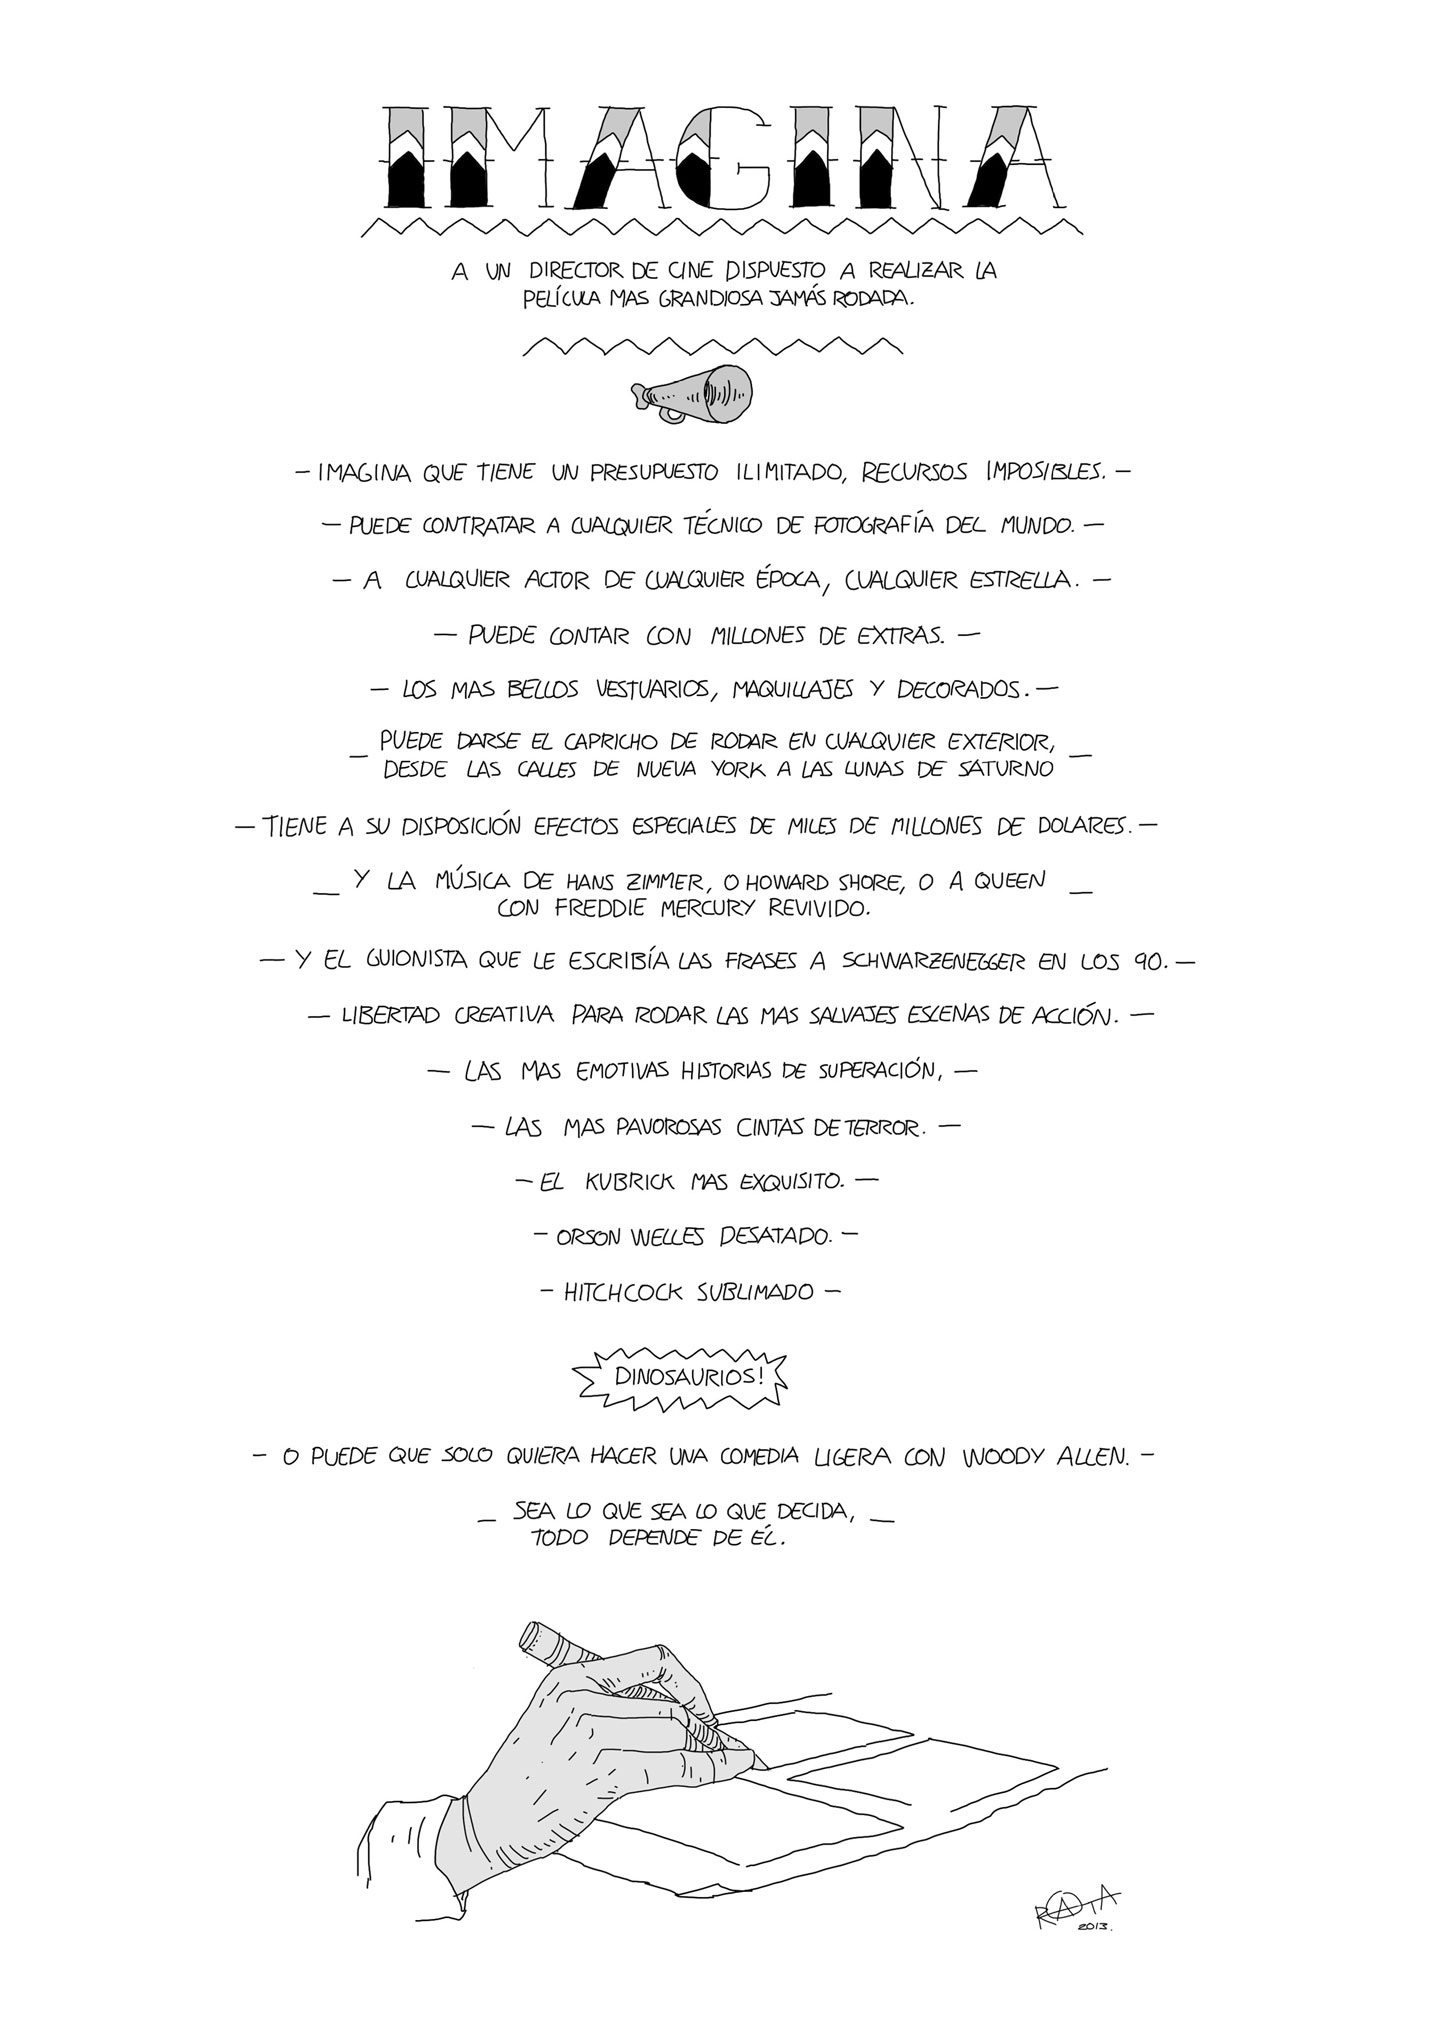 IMAGINA
A UN DIRECTOR DE CINE DISPUESTO A REALIZAR LA
PELÍCULA MAS GRANDIOSA JAMÁS RODADA.
— IMAGINA QUE TIENE UN PRESUPUESTO ILIMITADO, RECURSOS IMPOSIBLES. —
— PUEDE CONTRATAR A CUALQUIER TÉCNICO DE FOTOGRAFÍA DEL MUNDO. —
— A CUALQUIER ACTOR DE CUALQUIER ÉPOCA, CUALQUIER ESTRELLA. —
— PUEDE CONTAR CON MILLONES DE EXTRAS. —
— LOS MAS BELLOS VESTUARIOS, MAQUILLAJES Y DECORADOS. —
— PUEDE DARSE EL CAPRICHO DE RODAR EN CUALQUIER EXTERIOR,
DESDE LAS CALLES DE NUEVA YORK A LAS LUNAS DE SATURNO —
— TIENE A SU DISPOSICIÓN EFECTOS ESPECIALES DE MILES DE MILLONES DE DOLARES. —
— Y LA MÚSICA DE HANS ZIMMER, O HOWARD SHORE, O A QUEEN —
CON FREDDIE MERCURY REVIVIDO.
— Y EL GUIONISTA QUE LE ESCRIBÍA LAS FRASES A SCHWARZENEGGER EN LOS 90. —
— LIBERTAD CREATIVA PARA RODAR LAS MAS SALVAJES ESCENAS DE ACCIÓN. —
— LAS MAS EMOTIVAS HISTORIAS DE SUPERACIÓN, —
— LAS MAS PAVOROSAS CINTAS DE TERROR. —
— EL KUBRICK MAS EXQUISITO. —
— ORSON WELLES DESATADO. —
— HITCHCOCK SUBLIMADO —
DINOSAURIOS!
— O PUEDE QUE SOLO QUIERA HACER UNA COMEDIA LIGERA CON WOODY ALLEN. —
— SEA LO QUE SEA LO QUE DECIDA, —
TODO DEPENDE DE ÉL.
RATA
2013.